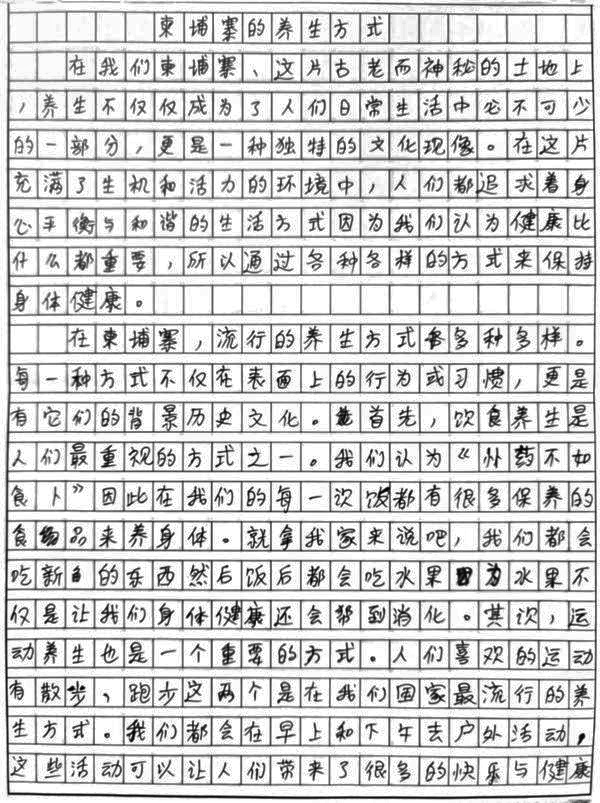 柬埔寨的养生方式
在我们柬埔寨、这片古老而神秘的土地上
，养生不仅仅成为了人们日常生活中必不可少
的一部分，更是一种独特的文化现像。在这片
充满了生机和活力的环境中，人们都追求着身
心平衡与和谐的生活方式因为我们认为健康比
什么都重要，所以通过各种各样的方式来保持
身体健康。
在柬埔寨，流行的养生方式多种多样。
每一种方式不仅在表面上的行为或习惯，更是
有它们的背景历史文化。首先，饮食养生是
人们最重视的方式之一。我们认为“药不如
食卜”因此在我们的每一次饭都有很多保养的
食品来养身体。就拿我家来说吧，我们都会
吃新的东西然后饭后都会吃水果因为水果不
仅是让我们身体健康还会帮到消化。其次，运
动养生也是一个重要的方式。人们喜欢的运动
有散步、跑步这两个是在我们国家最流行的养
生方式。我们都会在早上和下午去户外活动，
这些活动可以让人们带来了很多的快乐与健康